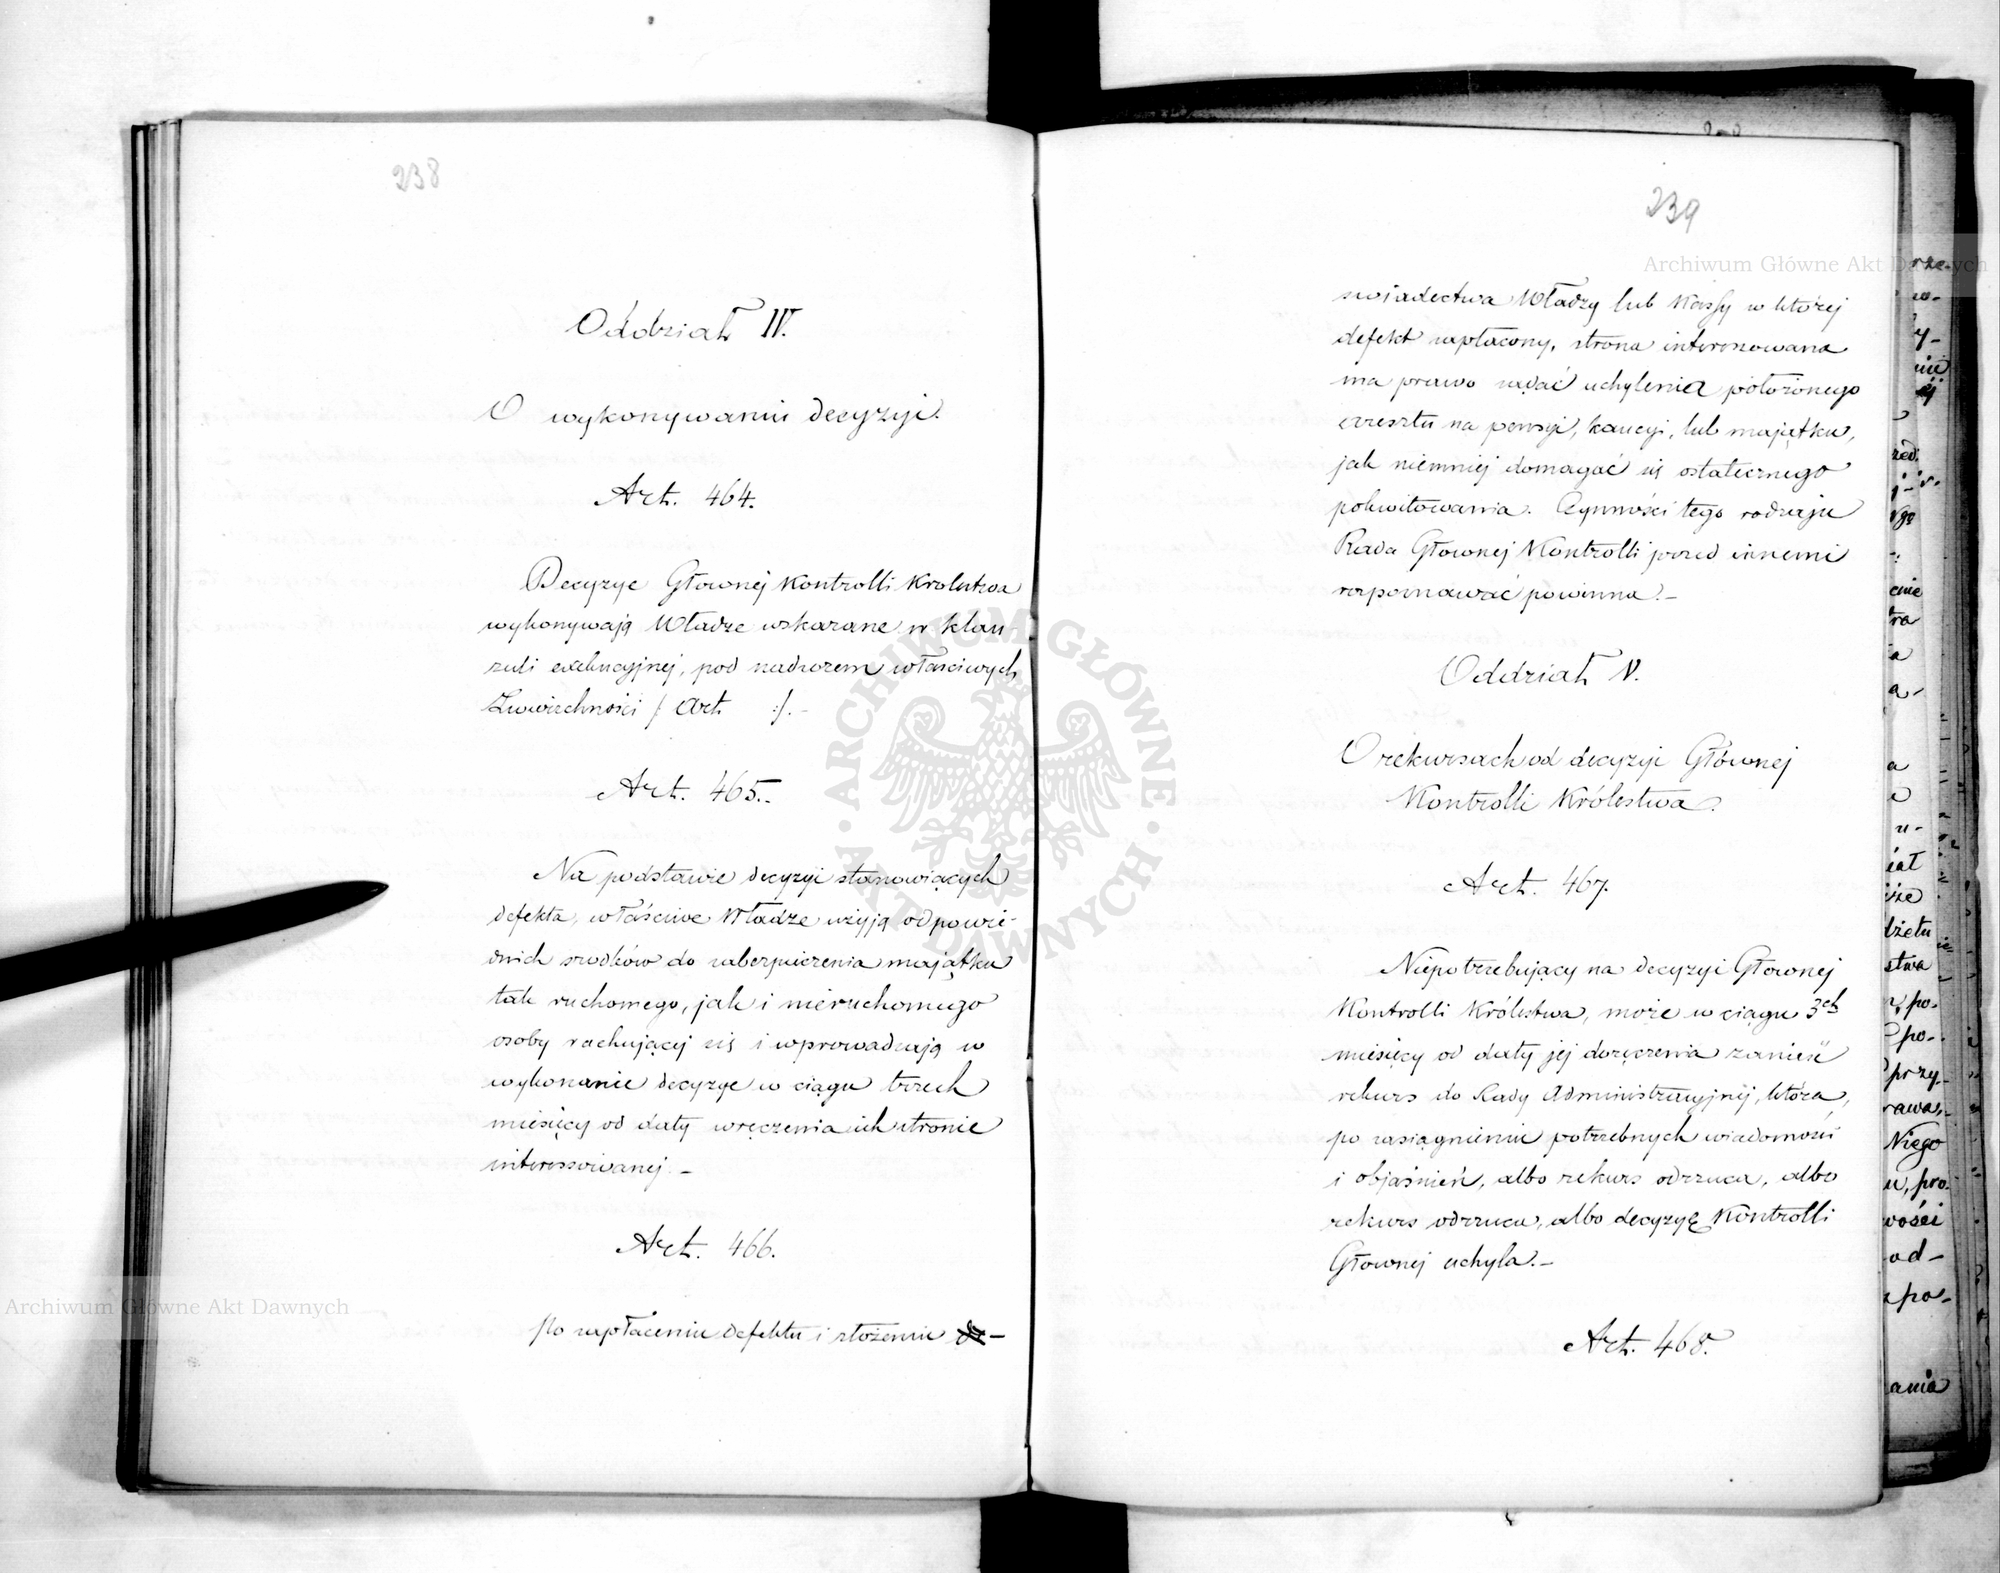 238
Oddział IV.
O wykonywaniu decyzyi.
Art. 464.
Decyzye Głownej Kontrolli Krolestwa
wykonywają Władze wskazane w klau-
zuli exekucyjnej, pod nadzorem właściwych
Zwierzchności /: Art :/. -
Art. 465.
Na podstawie decyzyi stanowiących
defekta, właściwe Władze użyją odpowie-
dnich srodków do zabezpieczenia majątku
tak ruchomego, jak i nieruchomego
osoby rachującej się i wprowadzają w
wykonanie decyzye w ciągu trzech
miesięcy od daty wręczenia ich stronie
interessowanej. -
Art. 466.
Po zapłaceniu defektu i złożeniu
239
swiadectwa Władzy lub Kassy w której
defekt zapłacony, strona interesowana
ma prawo żądać uchylenia położonego
aresztu na pensyi, kaucyi, lub majątku,
jak niemniej domagać się ostatecznego
pokwitowania. Czynności tego rodzaju
Rada Głownej Kontrolli przed innemi
rozpoznawać powinna. -
Oddział V.
O rekursach od decyzyi Głównej
Kontrolli Królestwa.
Art. 467.
Niepotrzebujący na decyzyi Głownej
Kontrolli Królestwa, może w ciągu 3ch
miesięcy od daty jej doręczenia zanieść
rekurs do Rady Administracyjnej, która,
po zasiągnieniu potrzebnych wiadomości
i objaśnień, albo rekurs odrzuca, albo
rekurs odrzuca, albo decyzyę Kontrolli
Głownej uchyla. -
Art. 468.
Archiwum Główne Akt Dawnych
Archiwum Główne Akt Dawnych
ARCHIWUM GŁÓWNE AKT DAWNYCH